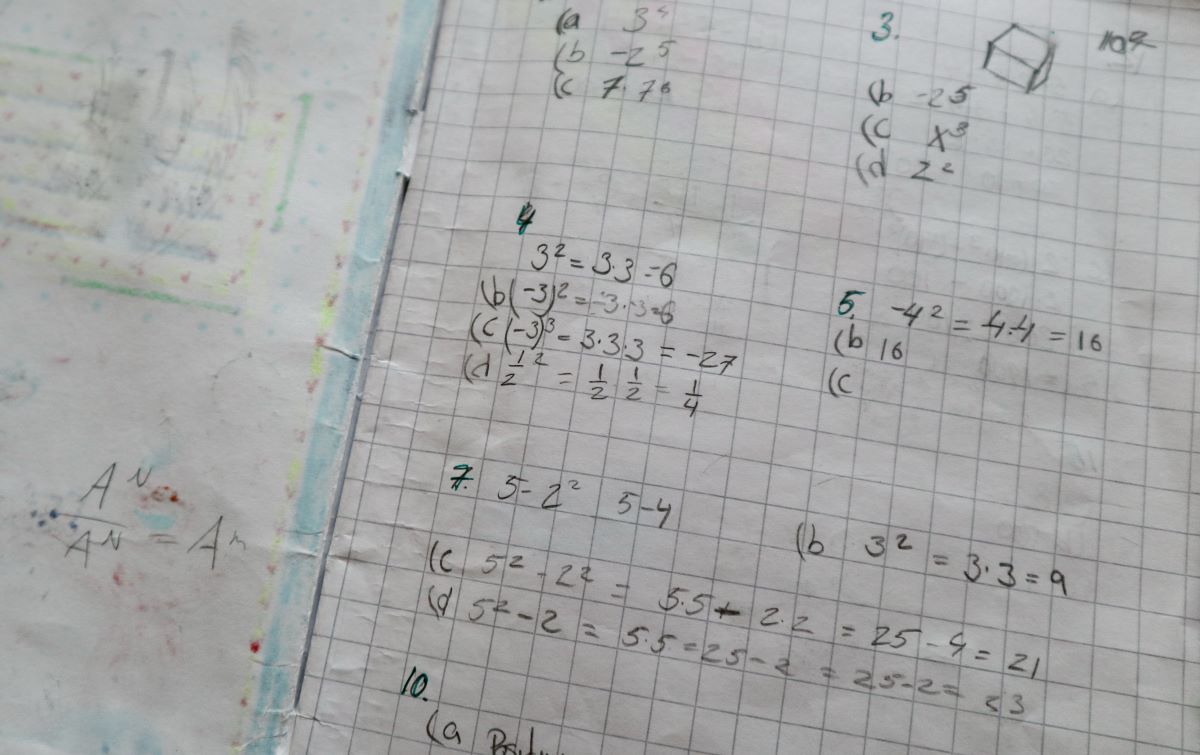 (a 3⁴
(b -2⁵
(c 7·7⁶
3.
(b -25
(c x³
(d 2²
4
3² = 3·3 = 6
(b (-3)² = -3·-3 = 6
(c (-3)³ = 3·3·3 = -27
(d 1/2² = 1/2 1/2 = 1/4
5. -4² = 4·4 = 16
(b 16
(c
7. 5-2² 5-4
(b 3² = 3·3 = 9
(c 5² - 2² = 5·5 - 2·2 = 25 - 4 = 21
(d 5² - 2 = 5·5 = 25 - 2 = 25 - 2 = 23
10.
(a
Aᴺ
Aᴺ = Aⁿ